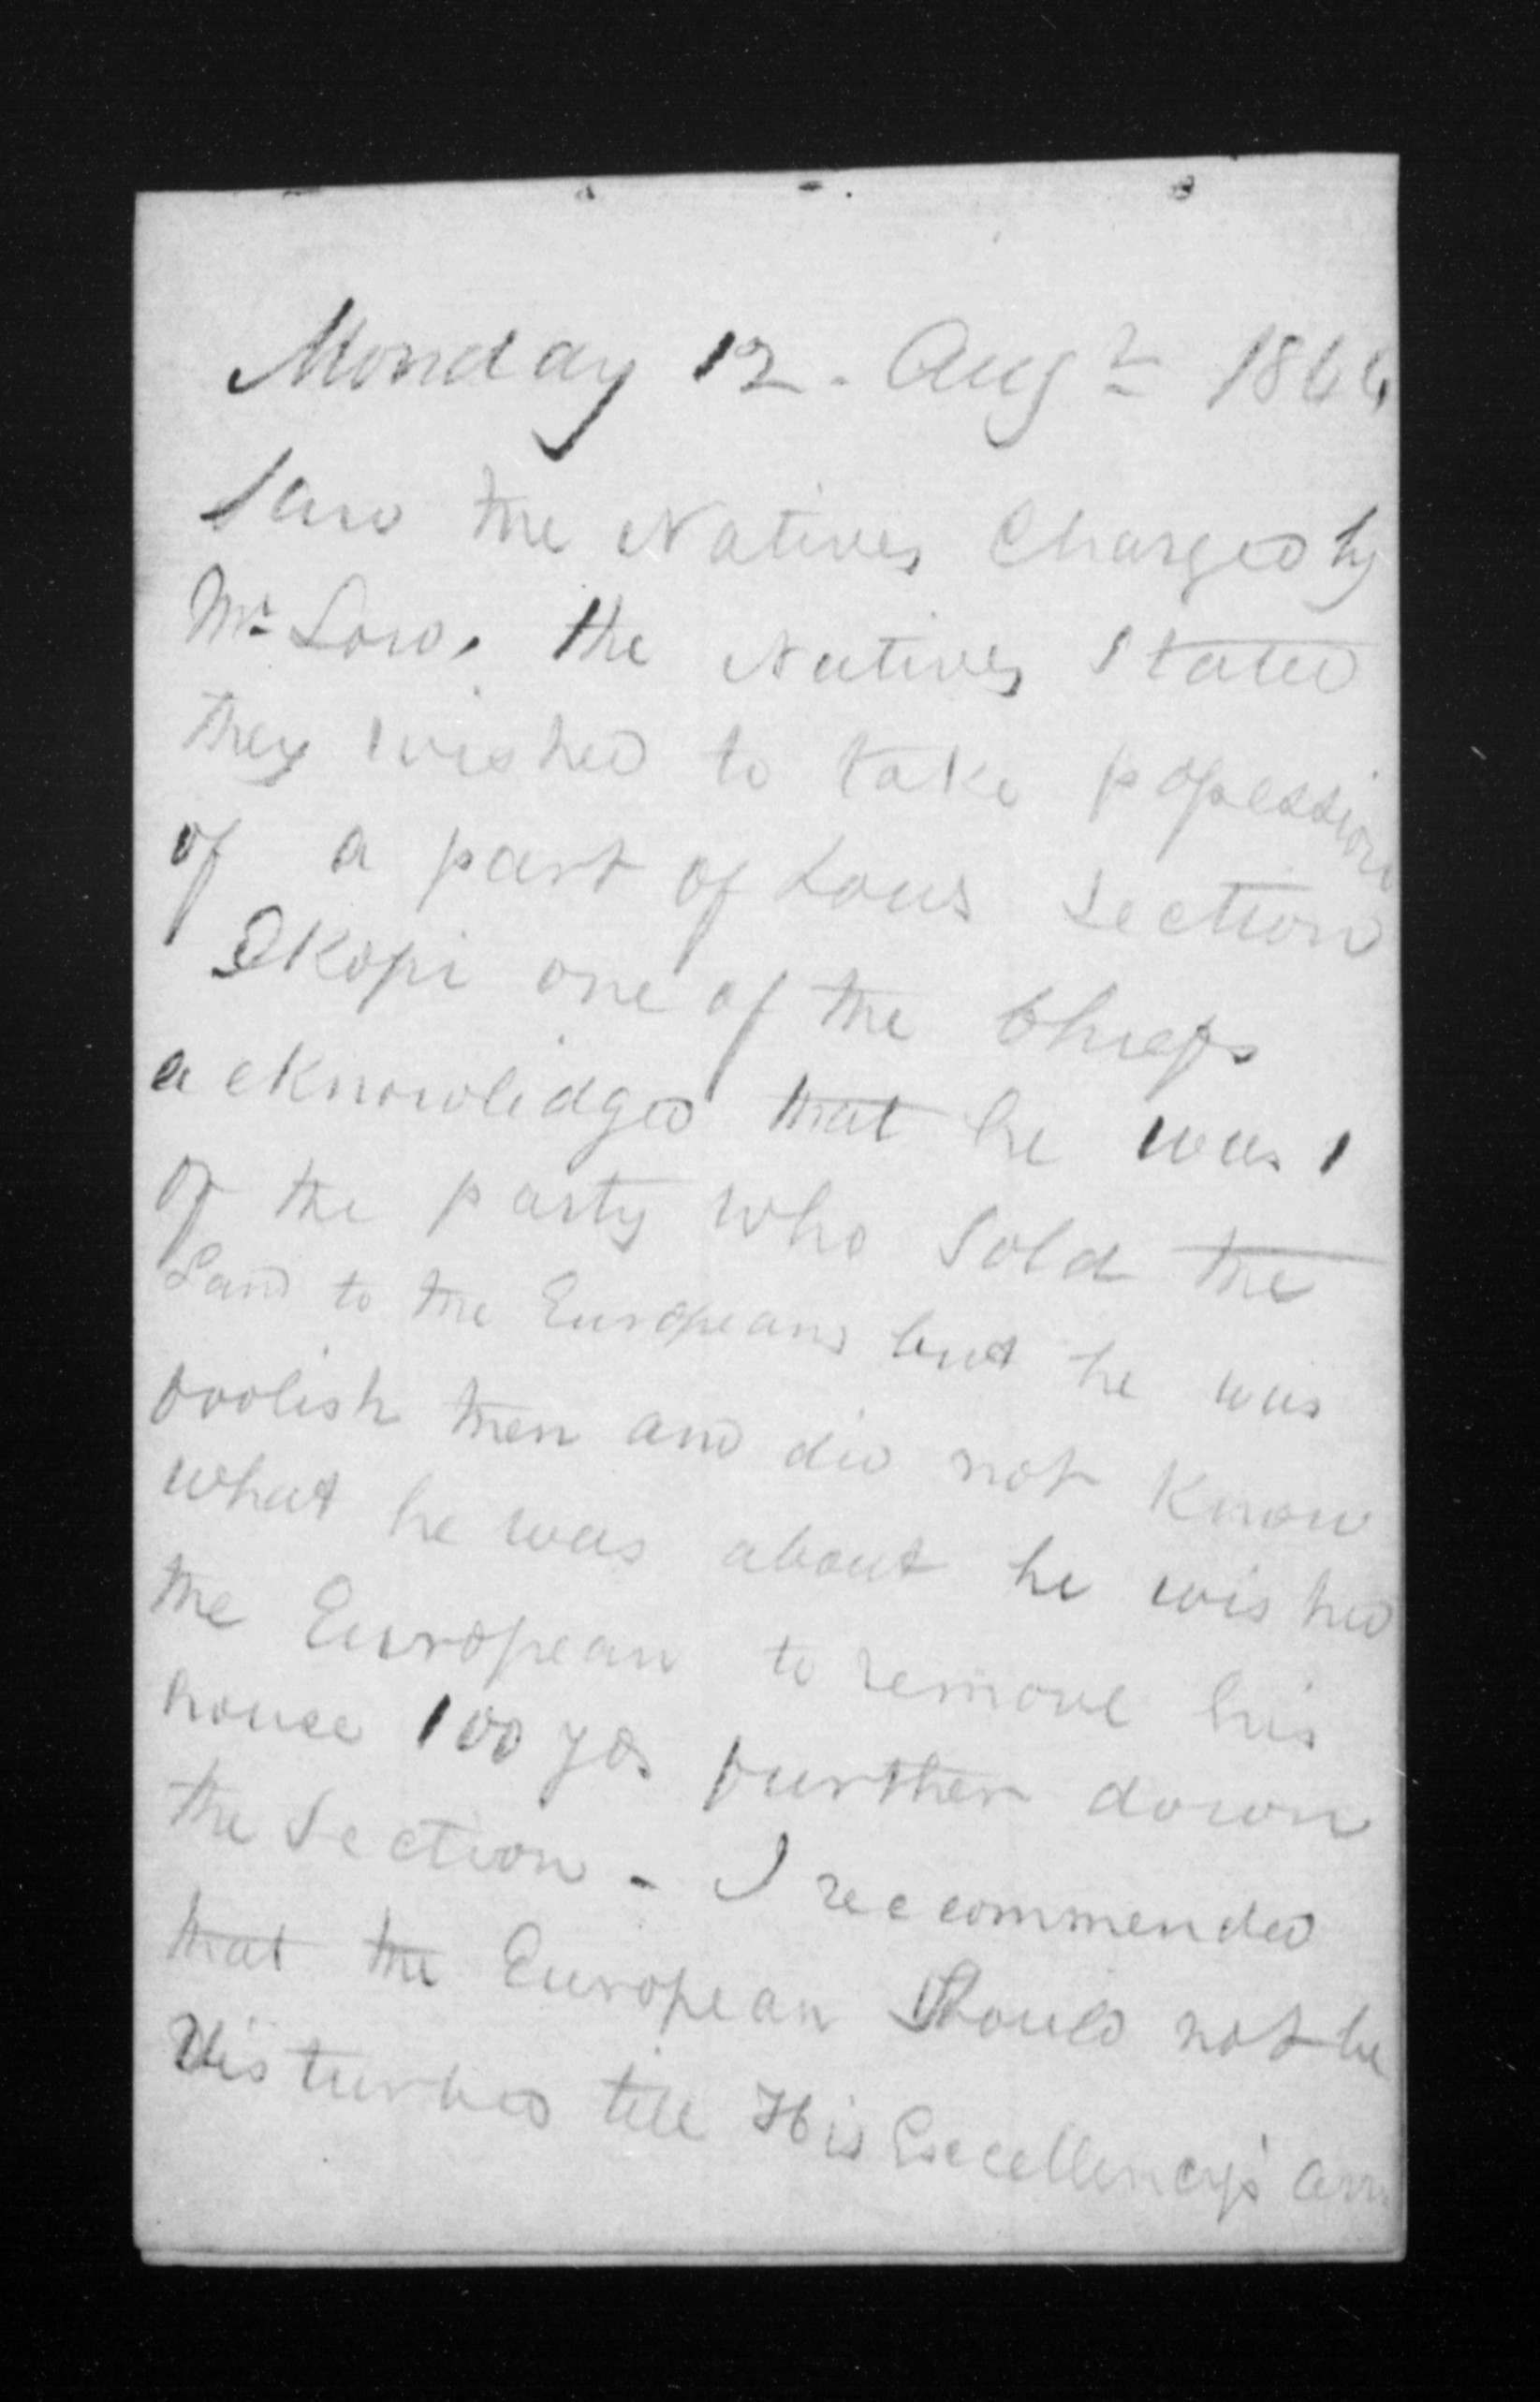 Monday 12. Augt 1844
Saw the Natives Charged by
Mr Low. the Natives Stated
they wished to take possession
of a part of Lows Section
Ekopi one of the Chiefs
acknowledged that he was 1
of the party who Sold the
Land to the Europeans but he was
foolish then and did not Know
what he was about he wished
the European to remove his
house 100 yds further down
the Section - I reccommended
that the European Should not be
disturbed till His Excellency's arr